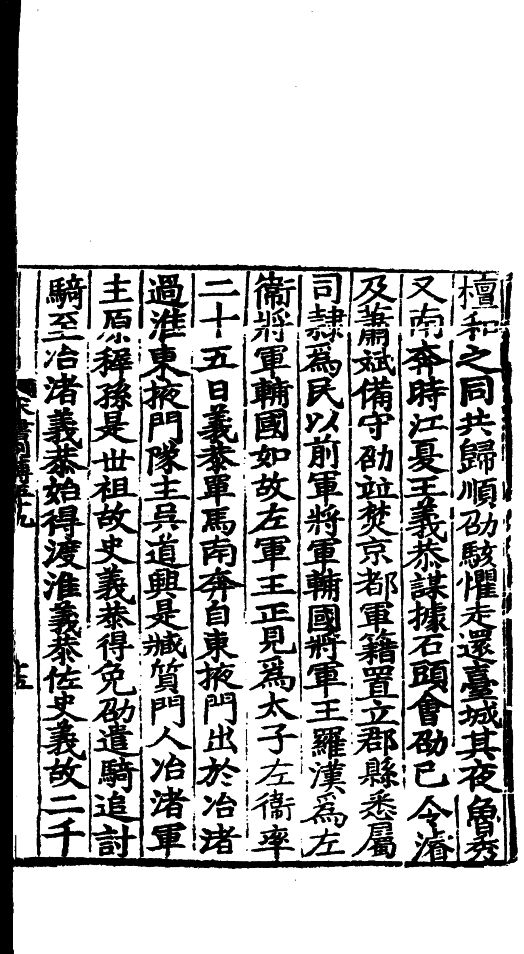 檀和之同共歸順劭駭懼走還臺城其夜魯秀
又南奔時江夏王義恭謀據石頭會劭已令濬
及蕭斌備守劭竝焚京都軍籍置立郡縣悉屬
司隸爲民以前軍將軍輔國將軍王羅漢爲左
衞將軍輔國如故左軍王正見爲太子左衞率
二十五日義恭單馬南奔自東掖門出於冶渚
過淮東掖門隊主吳道興是臧質門人冶渚軍
主原稺孫是世祖故史義恭得免劭遣騎追討
騎至冶渚義恭始得渡淮義恭佐史義故二千